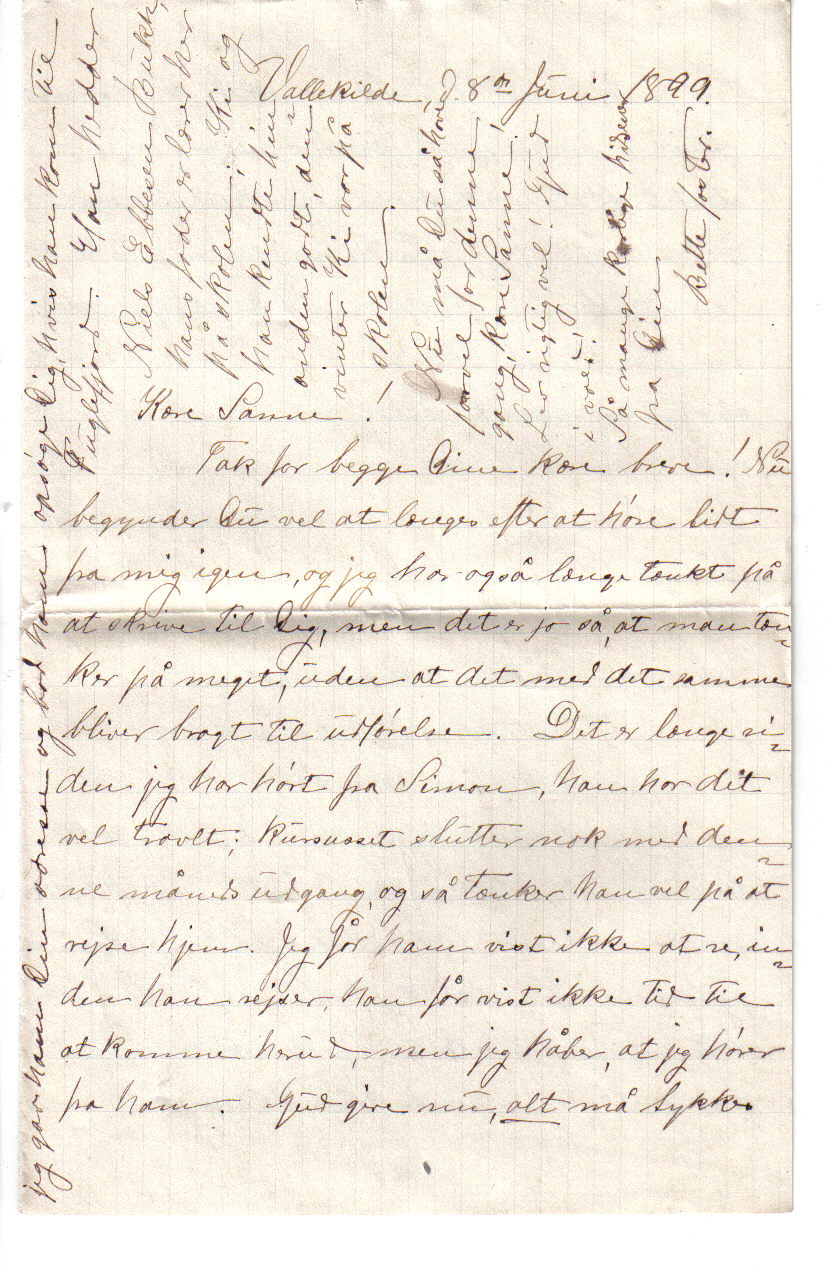 Vallekilde, d. 8de Juni 1899.
Kære Sanne!
Tak for begge Dine kære breve! Nu
begynder Du vel at længes efter at høre lidt
fra mig igen, og jeg har også længe tænkt på
at skrive til Dig, men det er jo så, at man tæn-
ker på meget, uden at det med det samme
bliver bragt til udførelse. Det er længe si-
den jeg har hørt fra Simon, han har det
vel travlt; kursusset slutter nok med den-
ne måneds udgang, og så tænker han vel på at
rejse hjem. Jeg får ham vist ikke at se, in-
den han rejser, han får vist ikke tid til
at komme herud, men jeg håber, at jeg hører
fra ham. Gud give nu, alt må lykkes
jeg gav ham Din adresse og bad ham opsøge Dig, hvis han kom til
Fuglefjord. Han hedder
Niels Ebbesen Bukh,
hans fader er lærer her
på skolen. Ki og
han kendte hin-
anden godt, den
vinter Ki var på
skolen.
Nu må Du så have
farvel for denne
gang, kære Sanne!
Lev rigtig vel! Gud
i vold!
Så mange kærlige hilsener
fra Din